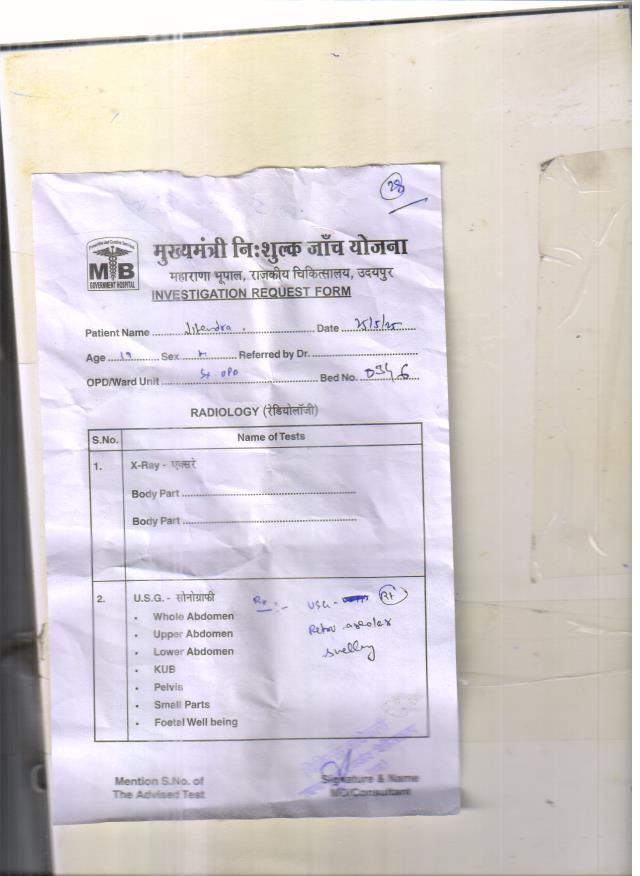 28
मुख्यमंत्री निःशुल्क जाँच योजना
महाराणा भूपाल, राजकीय चिकित्सालय, उदयपुर
MB
GOVERNMENT HOSPITAL
INVESTIGATION REQUEST FORM
Patient Name Jitendra. Date 25/5/25
Age 19 Sex M Referred by Dr.
OPD/Ward Unit Sr. OPD Bed No. 0346
RADIOLOGY (रेडियोलॉजी)
S.No. Name of Tests
1. X-Ray - एक्सरे
Body Part
Body Part
2. U.S.G. - सोनोग्राफी
USG - Rt
Retro areolar
swelling
• Whole Abdomen
• Upper Abdomen
• Lower Abdomen
• KUB
• Pelvis
• Small Parts
• Foetal Well being
Mention S.No. of
The Advised Test
Signature & Name
MO/Consultant